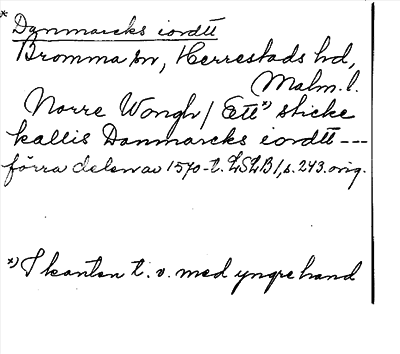 * Danmarcks iordtt
Bromma sn, Herrestads hd,
Malm. l.
Norre Wongh / Ett *) sticke
kallis Danmarcks iordtt ---
förra delen av 1570-t. LSLB 1, s. 243. orig.
*) I kanten t. v. med yngre hand